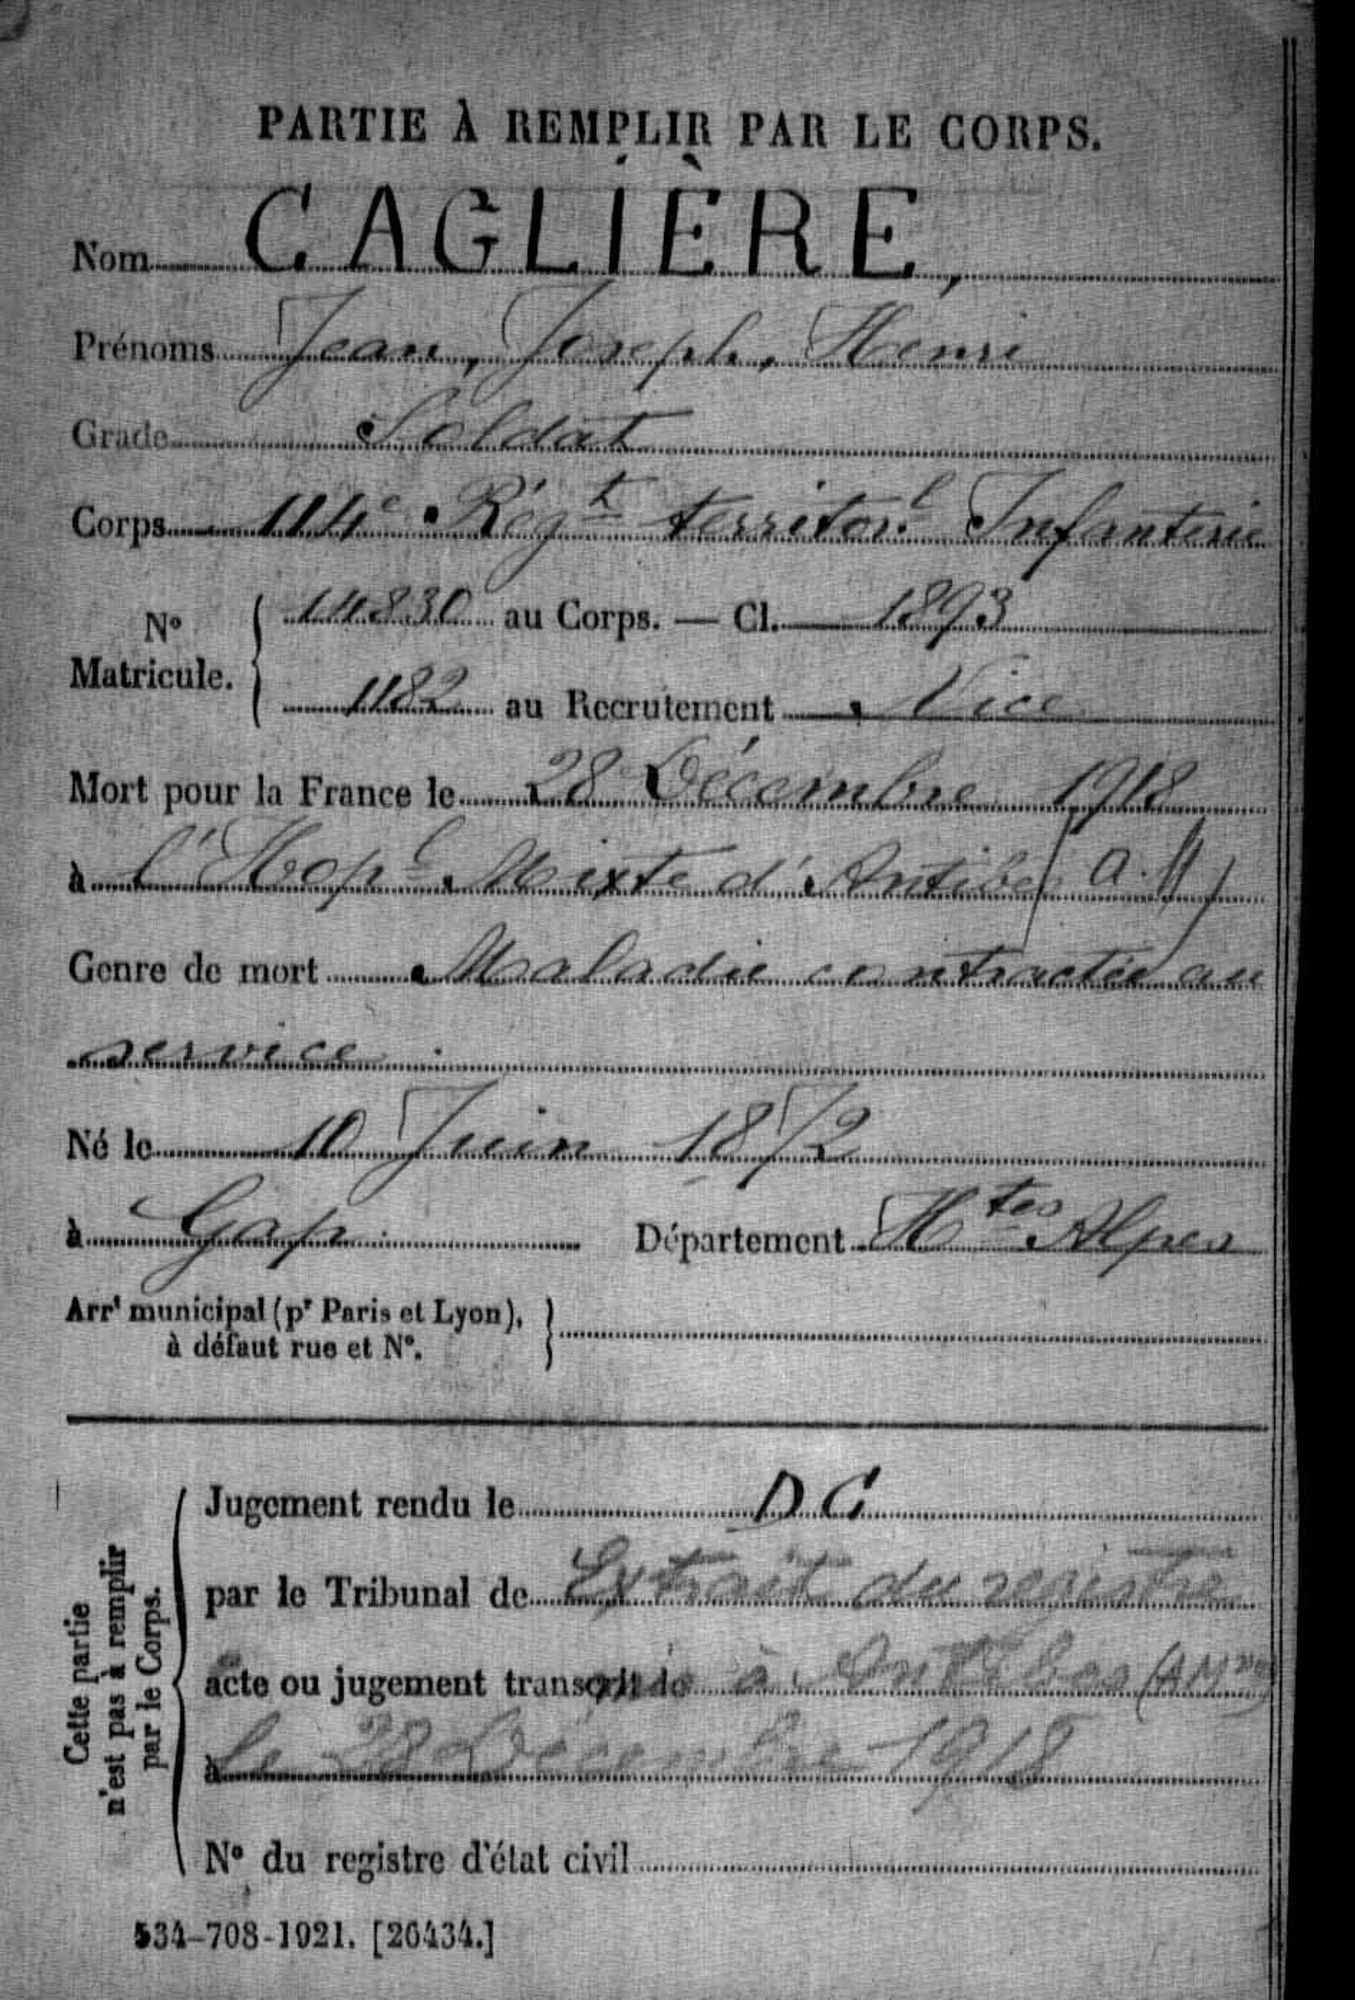 PARTIE À REMPLIR PAR LE CORPS.
Nom CAGLIÈRE,
Prénoms Jean, Joseph, Henri
Grade Soldat
Corps 114e Régt territorl Infanterie
No Matricule. 14830 au Corps. — Cl. 1893
1182 au Recrutement Nice
Mort pour la France le 28 Décembre 1918
à l'Hopl Mixte d'Antibes (A.M)
Genre de mort Maladie contractée au
service.
Né le 10 Juin 1872
à Gap Département Htes Alpes
Arrt municipal (pr Paris et Lyon),
à défaut rue et No.
Cette partie
n'est pas à remplir
par le Corps.
Jugement rendu le DC
par le Tribunal de Extrait du registre
acte ou jugement transcrit le à Antibes (AMmes)
à le 28 Décembre 1918
No du registre d'état civil
534-708-1921. [26434.]